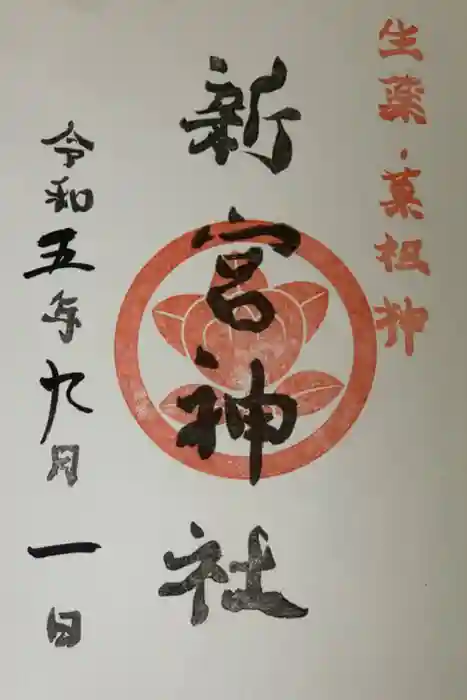 生薬・菓祖神
新宮神社
令和五年九月一日